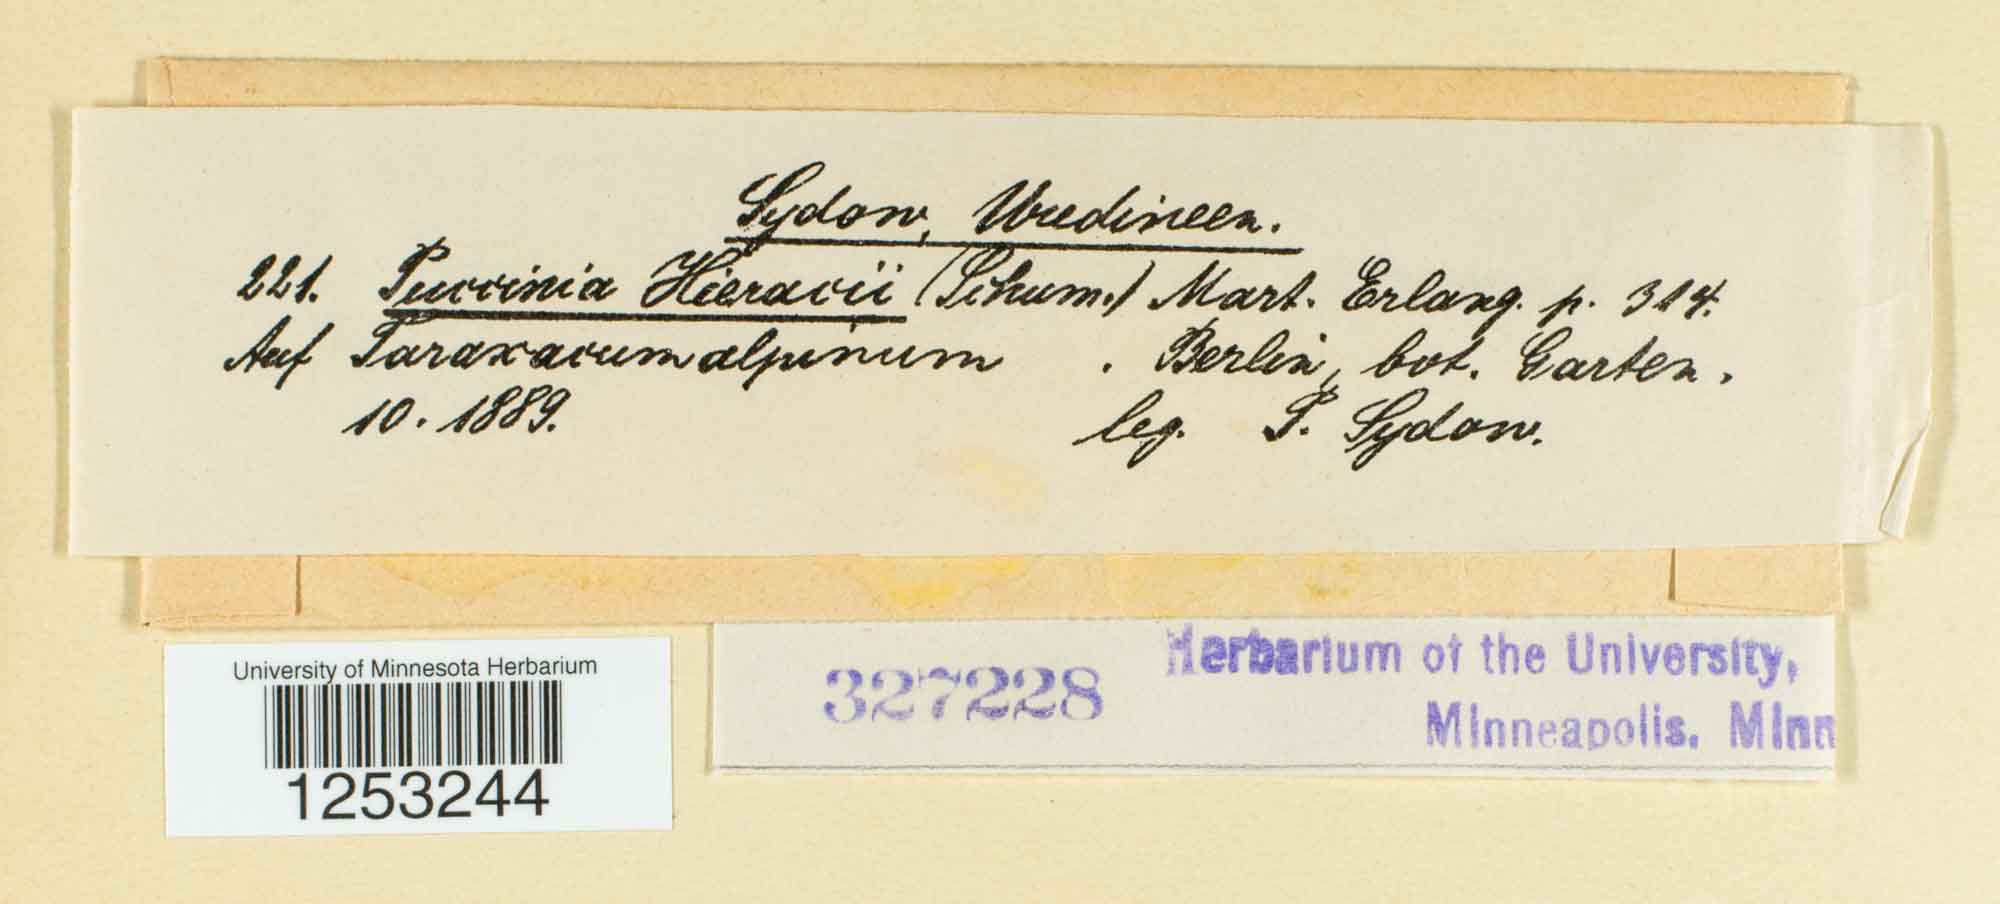 Sydow, Uredineen.
221. Puccinia Hieracii (Schum.) Mart. Erlang. p. 314.
Auf Taraxacum alpinum . Berlin, bot. Garten.
10. 1889. leg. P. Sydow.
University of Minnesota Herbarium
1253244
327228
Herbarium of the University,
Minneapolis. Minn